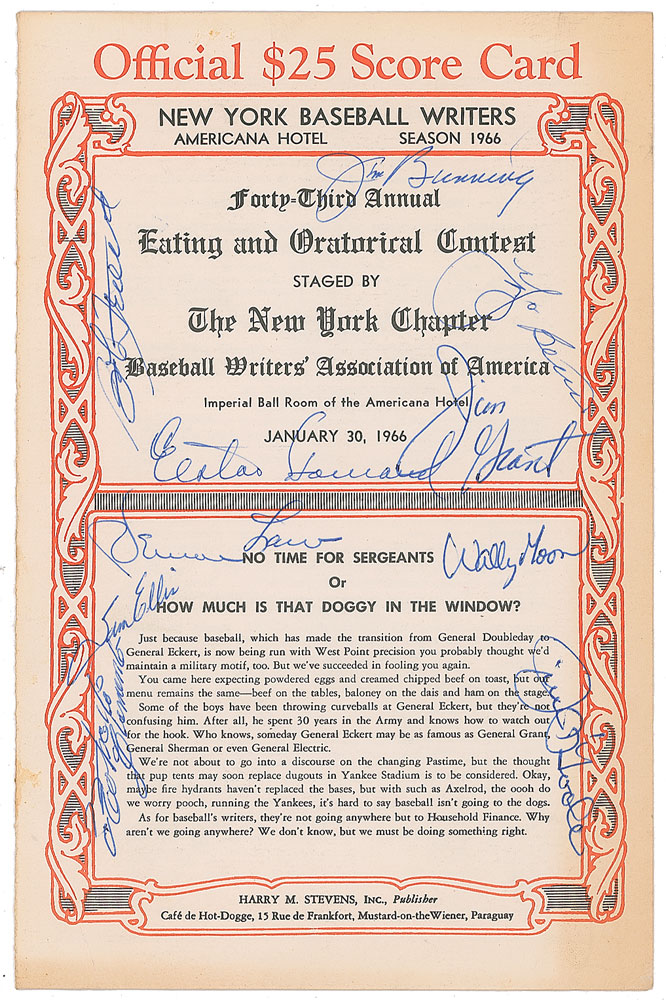 Official $25 Score Card
NEW YORK BASEBALL WRITERS
AMERICANA HOTEL SEASON 1966
Jim Bunning
Forty-Third Annual
Eating and Oratorical Contest
STAGED BY
The New York Chapter
Baseball Writers' Association of America
Imperial Ball Room of the Americana Hotel
Jim
JANUARY 30, 1966
Grant
Elston Howard
Vernon Law
NO TIME FOR SERGEANTS
Wally Moon
Or
Sam Ellis
HOW MUCH IS THAT DOGGY IN THE WINDOW?
Just because baseball, which has made the transition from General Doubleday to
General Eckert, is now being run with West Point precision you probably thought we'd
maintain a military motif, too. But we've succeeded in fooling you again.
You came here expecting powdered eggs and creamed chipped beef on toast, but our
menu remains the same—beef on the tables, baloney on the dais and ham on the stage.
Some of the boys have been throwing curveballs at General Eckert, but they're not
confusing him. After all, he spent 30 years in the Army and knows how to watch out
for the hook. Who knows, someday General Eckert may be as famous as General Grant,
General Sherman or even General Electric.
We're not about to go into a discourse on the changing Pastime, but the thought
that pup tents may soon replace dugouts in Yankee Stadium is to be considered. Okay,
maybe fire hydrants haven't replaced the bases, but with such as Axelrod, the oooh do
we worry pooch, running the Yankees, it's hard to say baseball isn't going to the dogs.
As for baseball's writers, they're not going anywhere but to Household Finance. Why
aren't we going anywhere? We don't know, but we must be doing something right.
HARRY M. STEVENS, INC., Publisher
Café de Hot-Dogge, 15 Rue de Frankfort, Mustard-on-the Wiener, Paraguay